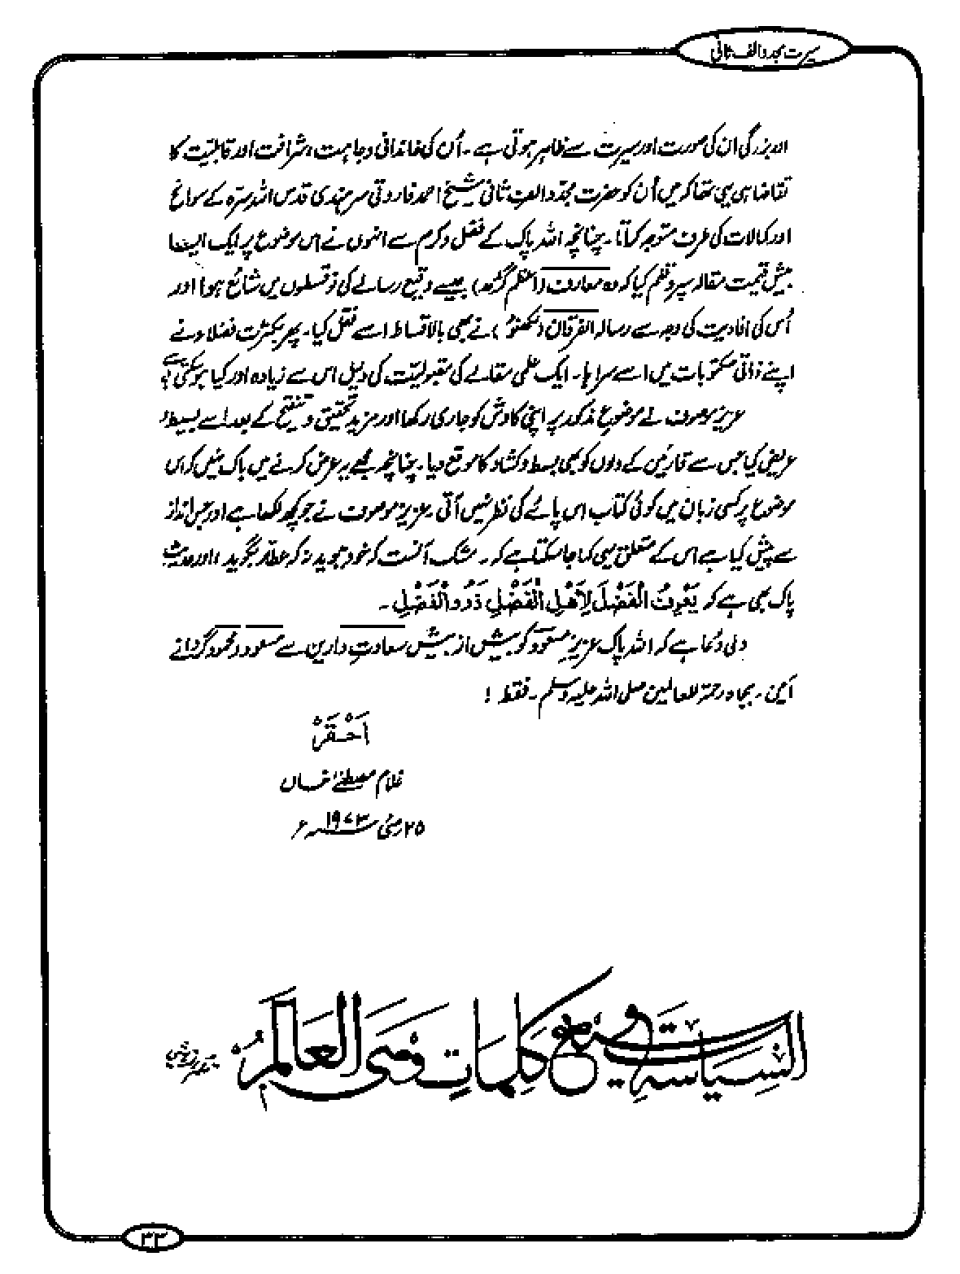 سیرت مجدد الف ثانی
اور بزرگی ان کی صورت اور سیرت سے ظاہر ہوتی ہے۔ اُن کی خاندانی وجاہت، شرافت اور قابلیت کا
تقاضا ہی یہی تھا کہ میں اُن کو حضرت مجدد الف ثانی شیخ احمد فاروقی سرہندی قدس اللہ سرہ کے سوانح
اور کمالات کی طرف متوجہ کراتا۔ چنانچہ اللہ پاک کے فضل و کرم سے انہوں نے اس موضوع پر ایک ایسا
بیش قیمت مقالہ سپرد قلم کیا کہ وہ معارف (اعظم گڑھ) جیسے وقیع رسالے کی نو قسطوں میں شائع ہوا اور
اُس کی افادیت کی وجہ سے رسالہ الفرقان (لکھنؤ) نے بھی بالاقساط اسے نقل کیا۔ پھر بکثرت فضلاء نے
اپنے ذاتی مکتوبات میں اسے سراہا۔ ایک علمی مقالے کی مقبولیت کی دلیل اس سے زیادہ اور کیا ہو سکتی ہے
عزیز موصوف نے موضوع مذکور پر اپنی کاوش کو جاری رکھا اور مزید تحقیق و تنقیح کے بعد اسے بسیط و
عریض کیا جس سے قارئین کے دلوں کو بھی بسط و کشاد کا موقع دیا۔ چنانچہ مجھے یہ عرض کرنے میں باک نہیں کہ اس
موضوع پر کسی زبان میں کوئی کتاب اس پائے کی نظر نہیں آتی۔ عزیز موصوف نے جو کچھ لکھا ہے اور جس انداز
سے پیش کیا ہے اس کے متعلق یہی کہا جا سکتا ہے کہ۔ مشک آنست کہ خود ببوید نہ کہ عطار بگوید، اور حدیث
پاک بھی ہے کہ یَعْرِفُ الْفَضْلَ لِاَهْلِ الْفَضْلِ ذَوُو الْفَضْلِ۔
دلی دُعا ہے کہ اللہ پاک عزیزِ مسعود کو بیش از بیش سعادتِ دارین سے مسعود و محمود گردانے
آمین۔ بجاہ رحمۃ للعالمین صلی اللہ علیہ وسلم۔ فقط!
اَحْقَرْ
غلام مصطفےٰ خاں
۲۵ مئی ۱۹۷۳ء
۳۳